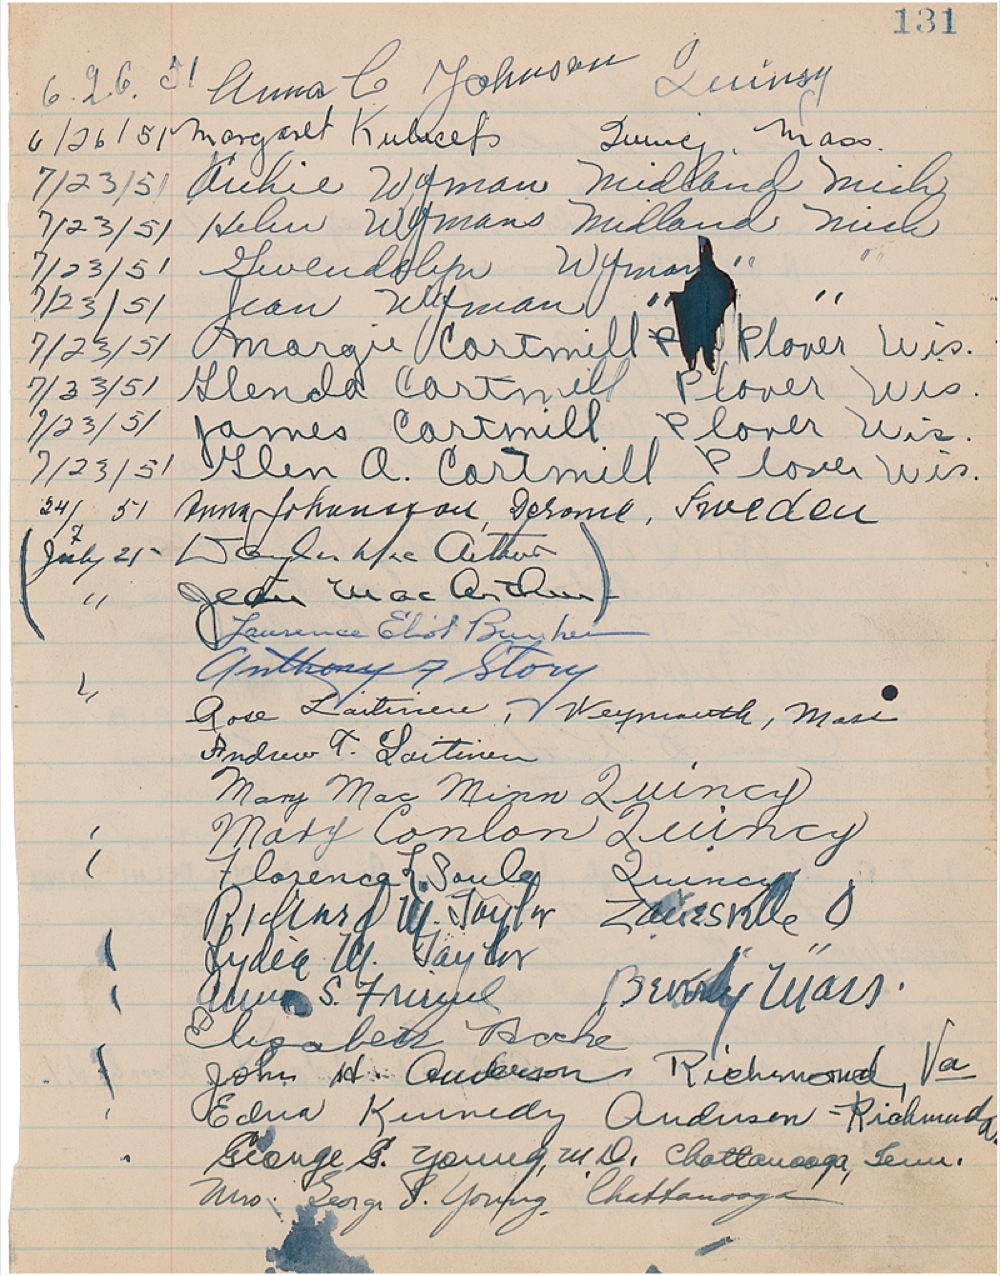 131
6. 26. 51 Anna C Johnson Quinsy
6/26/51 Margaret Quincy, Mass.
7/23/51 Archie Wyman Midland Mich
7/23/51 Helen Wymans Midland Mich
7/23/51 Gwendolyn Wyman " "
7/23/51 Jean Wyman " "
7/23/51 Margie Cartmill P Plover Wis.
7/23/51 Glenda Cartmill Plover Wis.
7/23/51 James Cartmill Plover Wis.
7/23/51 Glen A. Cartmill Plover Wis.
24/7 51 Anna Johansson, Derome, Sweden
(July 25 Douglas MacArthur
" Jean MacArthur)
Laurence Eliot Bunker
" Anthony F Story
Rose Laitinen, Weymouth, Mass
Andrew T. Laitinen
Mary Mac Minn Quincy
Mary Conlon Quincy
Florence L. Soule Quincy
Richard W. Taylor Zanesville O
Lydia M. Taylor " "
S. Beverly Mass.
Elizabeth
John H. Anderson Richmond, Va
Edna Kennedy Anderson - Richmond Va.
George G. Young, M.D. Chattanooga, Tenn.
Mrs. George G. Young, Chattanooga